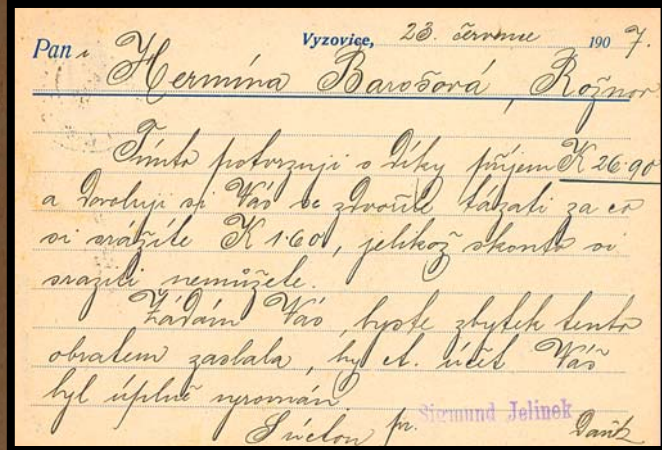 Vyzovice, 23. července 1907.
Paní Hermína Barošová, Rožnov
Tímto potvrzuji s díky příjem K 26·90
a dovoluji si Vás se zdvořile tázati za co
si srážíte K 1·60, jelikož skonto si
sraziti nemůžete.
Žádám Vás, byste zbytek tento
obratem zaslala, by ct. účet Váš
byl úplně vyrovnán.
S úctou pr. Sigmund Jelinek